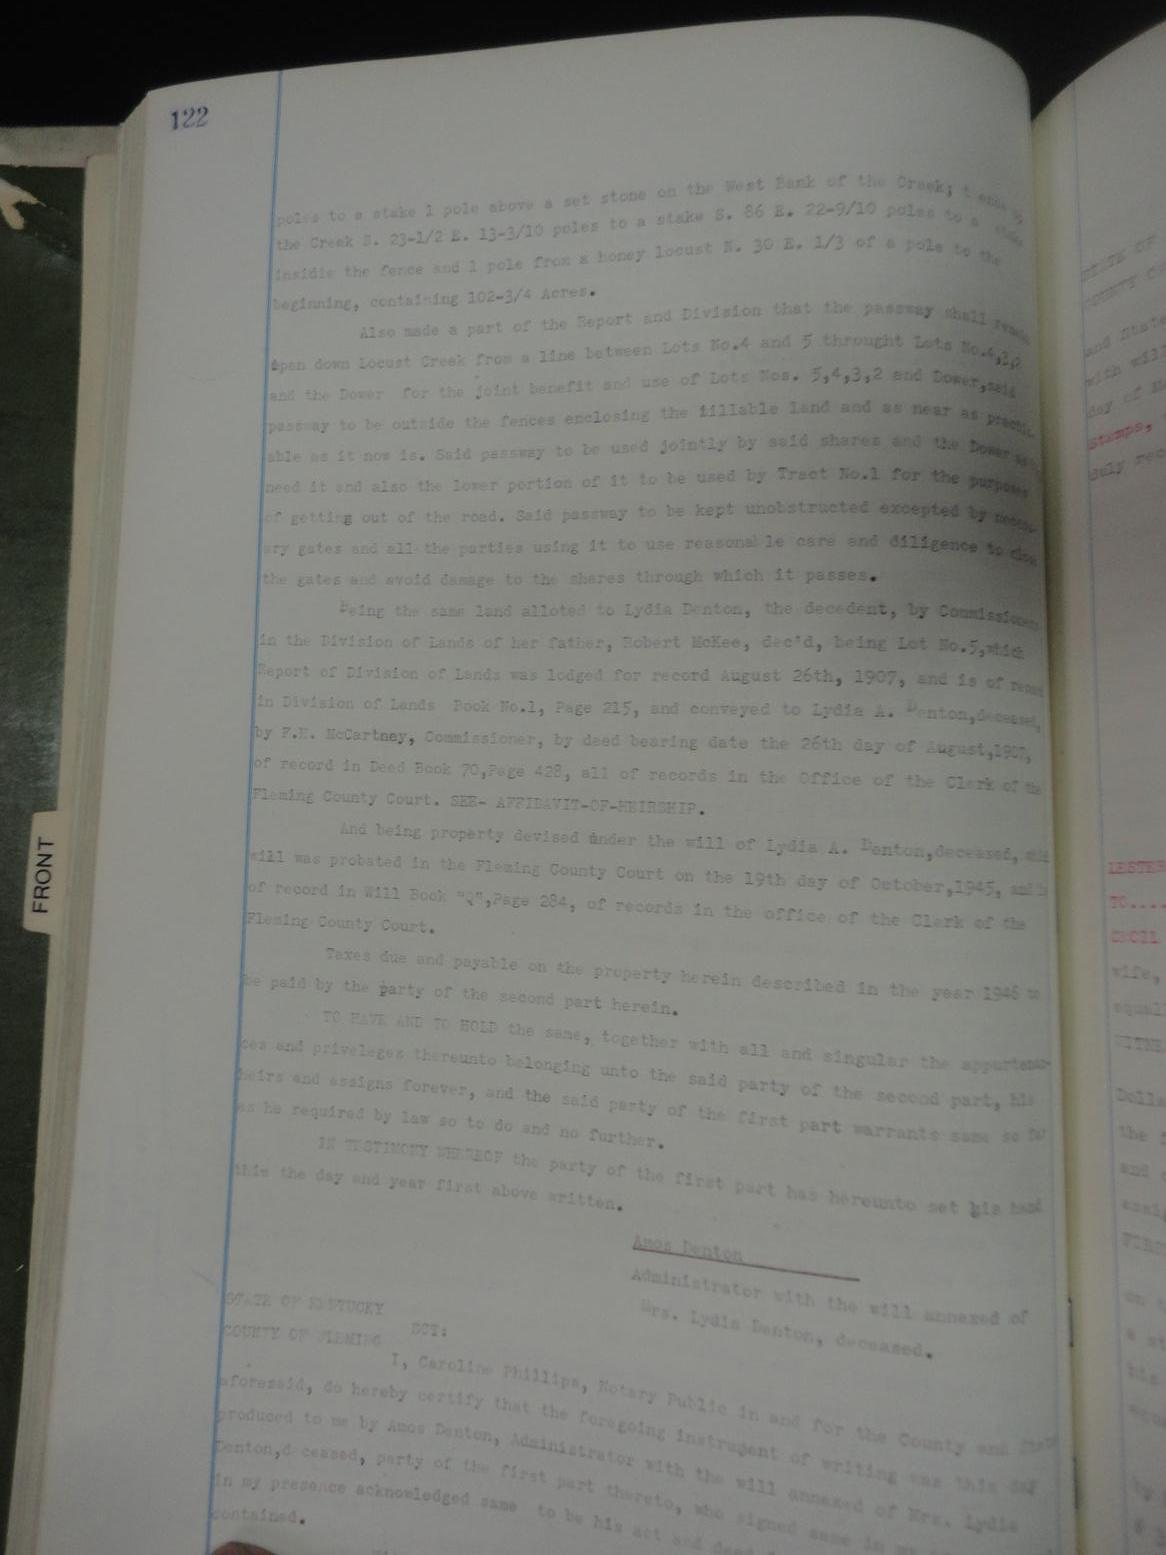 122
poles to a stake 1 pole above a set stone on the West Bank of the Creek;
the Creek S. 23-1/2 E. 13-3/10 poles to a stake S. 86 E. 22-9/10 poles to a
insidie the fence and 1 pole from a honey locust N. 30 E. 1/3 of a pole to the
beginning, containing 102-3/4 Acres.
Also made a part of the Report and Division that the passway shall
open down Locust Creek from a line between Lots No.4 and 5 throught Lots No.4,3,2
and the Dower for the joint benefit and use of Lots Nos. 5,4,3,2 and Dower,said
passway to be outside the fences enclosing the tillable land and as near as practic-
able as it now is. Said passway to be used jointly by said shares and the Dower
need it and also the lower portion of it to be used by Tract No.1 for the purpose
of getting out of the road. Said passway to be kept unobstructed excepted by necess-
ary gates and all the parties using it to use reasonable care and diligence to close
the gates and avoid damage to the shares through which it passes.
Being the same land alloted to Lydia Denton, the decedent, by Commissioners
in the Division of Lands of her father, Robert McKee, dec'd, being Lot No.5,which
Report of Division of Lands was lodged for record August 26th, 1907, and is of record
in Division of Lands Book No.1, Page 215, and conveyed to Lydia A. Denton,deceased,
by F.H. McCartney, Commissioner, by deed bearing date the 26th day of August,1907,
of record in Deed Book 70,Page 428, all of records in the Office of the Clerk of the
Fleming County Court. SEE- AFFIDAVIT-OF-HEIRSHIP.
And being property devised under the will of Lydia A. Denton,deceased, said
will was probated in the Fleming County Court on the 19th day of October,1945, and is
of record in Will Book "Q",Page 284, of records in the office of the Clerk of the
Fleming County Court.
Taxes due and payable on the property herein described in the year 1946 to
be paid by the party of the second part herein.
TO HAVE AND TO HOLD the same, together with all and singular the appurtenan-
ces and priveleges thereunto belonging unto the said party of the second part, his
heirs and assigns forever, and the said party of the first part warrants same so far
as he required by law so to do and no further.
IN TESTIMONY WHEREOF the party of the first part has hereunto set his hand
this the day and year first above written.
Amos Denton
Administrator with the will annexed of
Mrs. Lydia Denton, deceased.
STATE OF KENTUCKY
SCT:
COUNTY OF FLEMING
I, Caroline Phillips, Notary Public in and for the County and State
aforesaid, do hereby certify that the foregoing instrument of writing was this day
produced to me by Amos Denton, Administrator with the will annexed of Mrs. Lydia
Denton,d ceased, party of the first part thereto, who signed same in my
in my presence acknowledged same to be his act and deed
contained.
FRONT
STATE OF
COUNTY
and State
with will
day of
Stamps,
duly rec
LESTER
TO....
CECIL
wife,
equall
WITNE
Dolla
the
and
assig
FIRST
on
a st
his